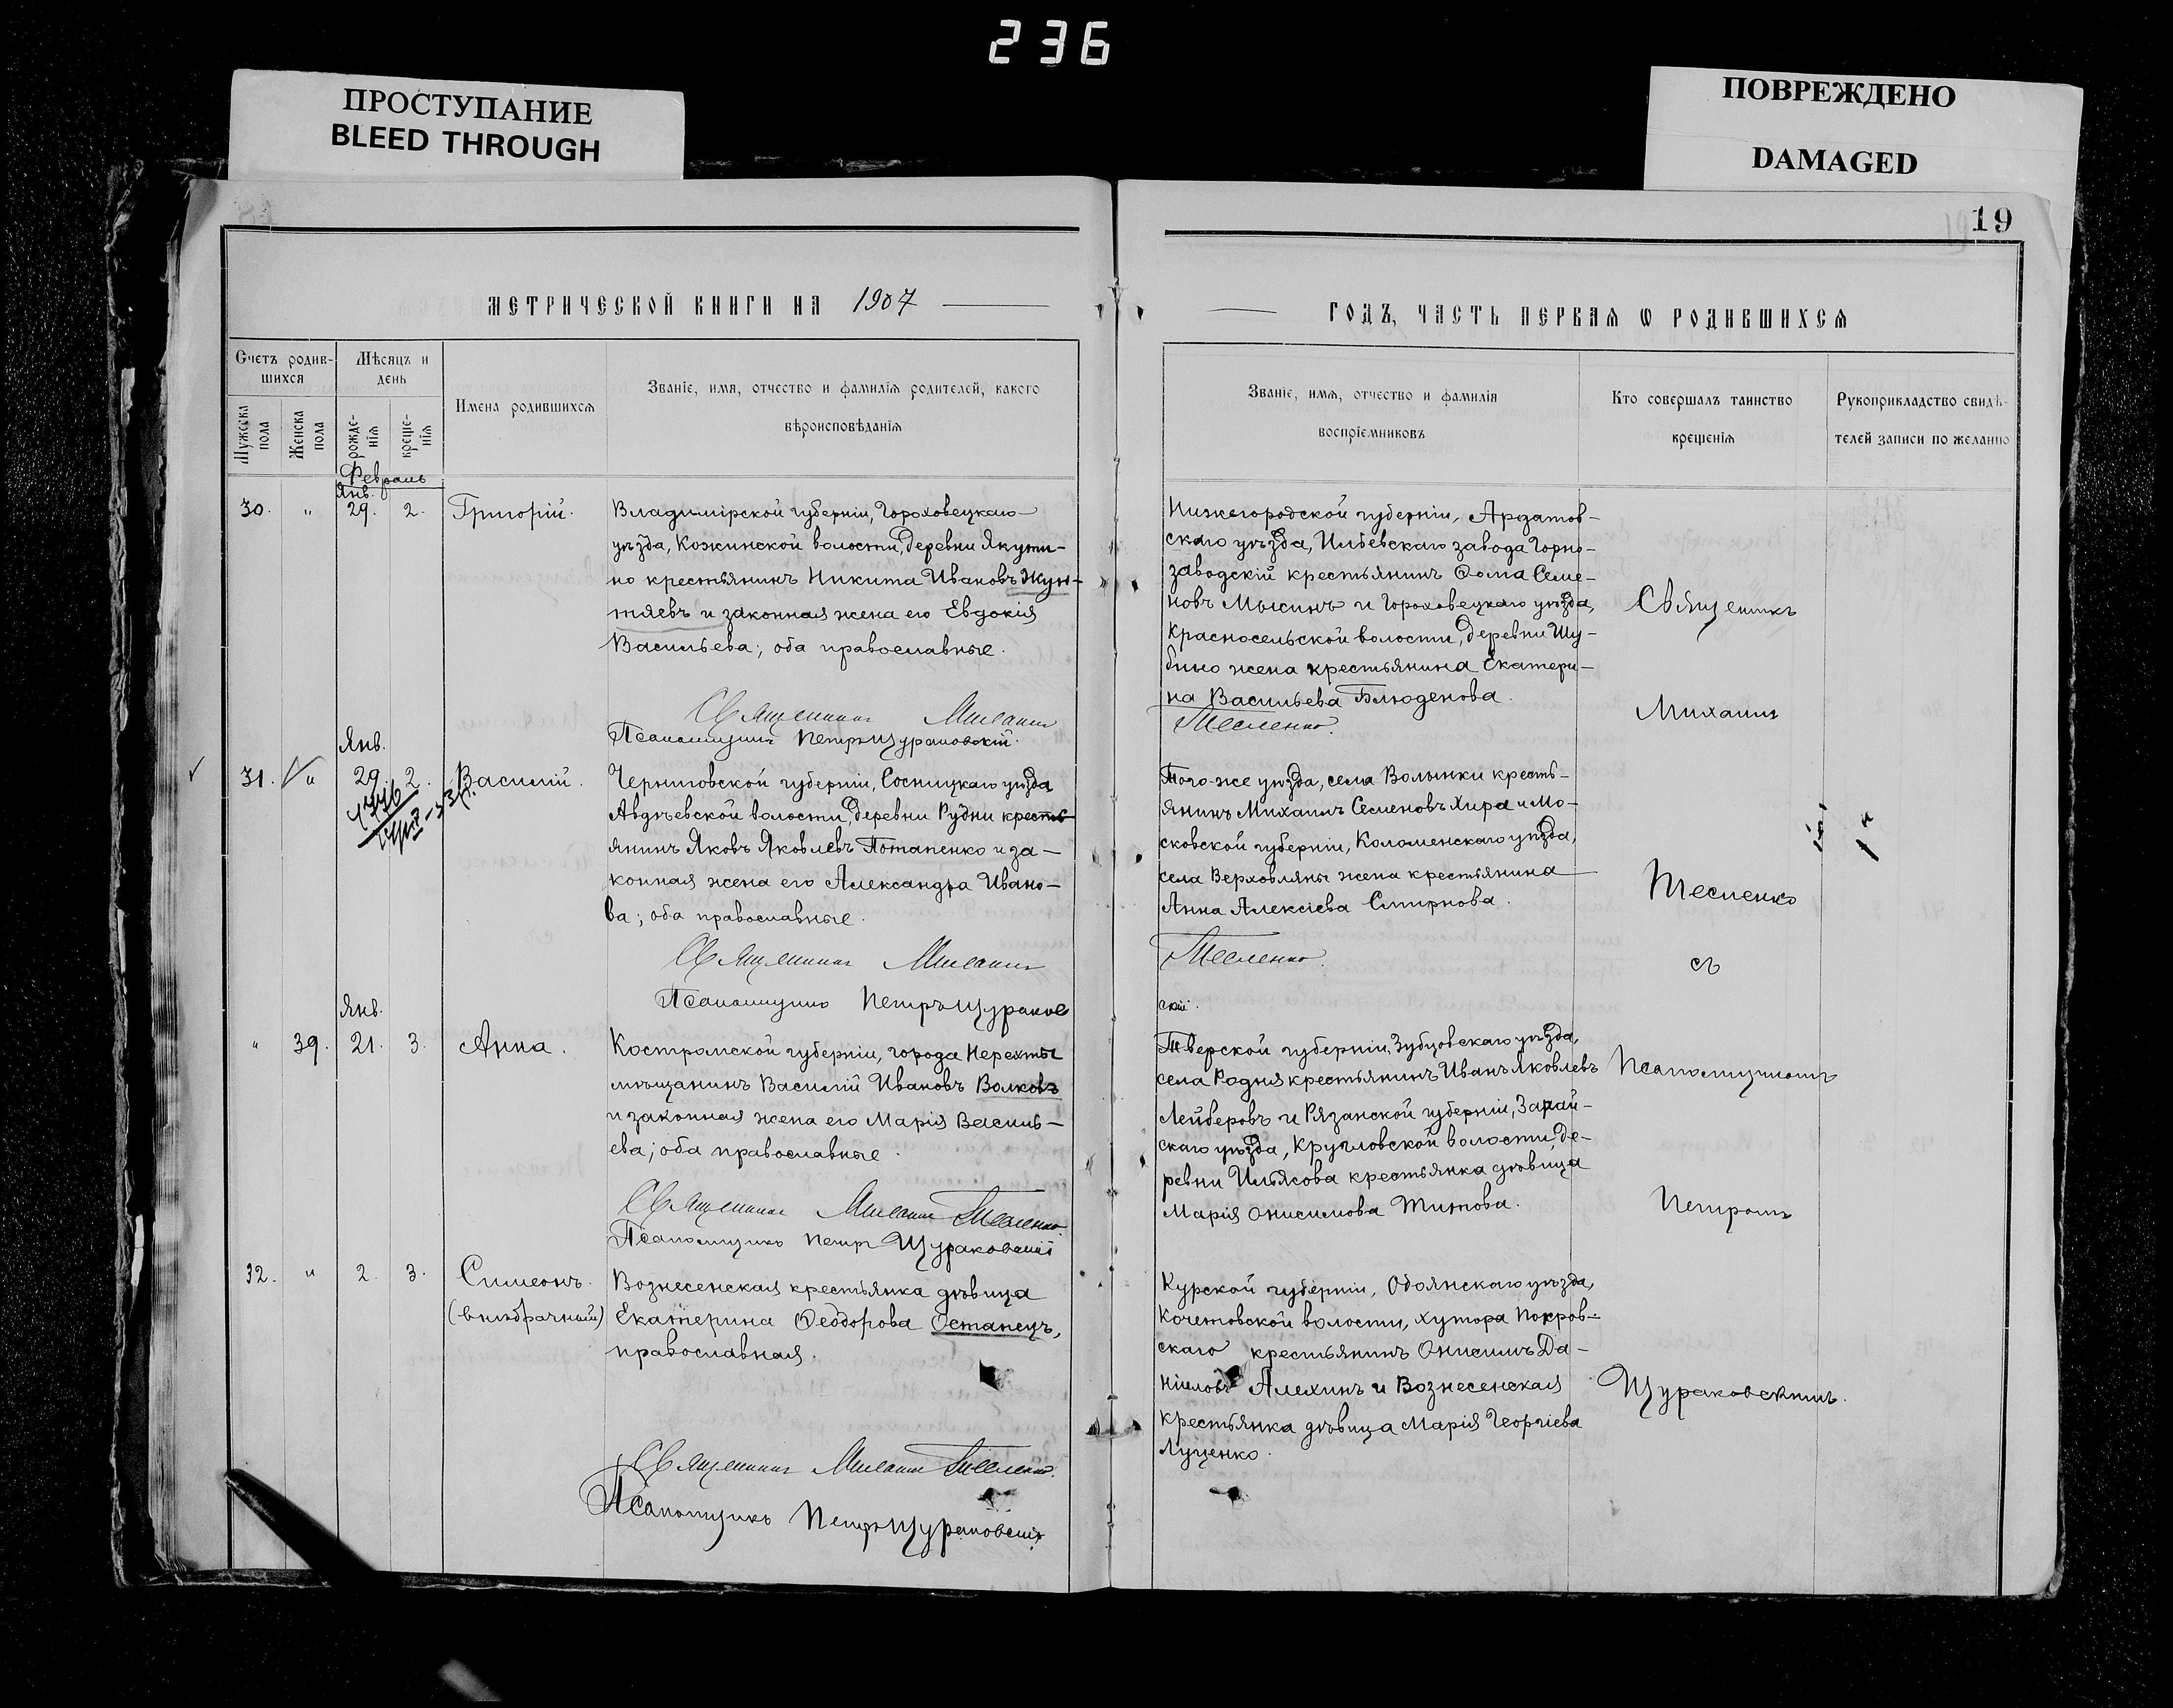 236
ПРОСТУПАНИЕ
BLEED THROUGH
ПОВРЕЖДЕНО
DAMAGED
19
МЕТРИЧЕСКОЙ КНИГИ НА 1907
ГОДЪ, ЧАСТЬ ПЕРВАЯ Ѡ РОДИВШИХСЯ
Счетъ родив-
шихся
Мѣсяцъ и
день
Мужеска
пола
Женска
пола
рожде-
нія
креще-
нія
Имена родившихся
Званіе, имя, отчество и фамилія родителей, какого
вѣроисповѣданія
Званіе, имя, отчество и фамилія
воспріемниковъ
Кто совершалъ таинство
крещенія
Рукоприкладство свидѣ-
телей записи по желанію
Февраль
Янв.
30. " 29. 2. Григорій.
Владимірской губерніи, Гороховецкаго
уѣзда, Кожинской волости, деревни Якути-
но крестьянинъ Никита Ивановъ
и законная жена его Евдокія
Васильева; оба православные.
Священникъ Михаилъ
Тесленко.
Псаломщикъ Петръ Щураковскій.
Нижегородской губерніи, Ардатов-
скаго уѣзда, Илевскаго завода Горно-
заводскій крестьянинъ Ѳома Семе-
новъ Мысинъ и Гороховецкаго уѣзда,
Красносельской волости, деревни Шу-
бино жена крестьянина Екатери-
на Васильева Блюденова.
Янв.
31. " 29. 2. Василій.
Черниговской губерніи, Сосницкаго уѣзда
Авдѣевской волости, деревни Рудни кресть-
янинъ Яковъ Яковлевъ Потапенко и за-
конная жена его Александра Ивано-
ва; оба православные.
Священникъ Михаилъ
Тесленко.
Псаломщикъ Петръ Щураков
скій.
Того-же уѣзда, села Волынки кресть-
янинъ Михаилъ Семеновъ Хира и Мо-
сковской губерніи, Коломенскаго уѣзда,
села Верховляны жена крестьянина
Анна Алексіева Смирнова.
Янв.
" 39. 21. 3. Анна.
Костромской губерніи, города Нерехты
мѣщанинъ Василій Ивановъ Волковъ
и законная жена его Марія Василь-
ева; оба православные.
Священникъ Михаилъ Тесленко
Псаломщикъ Петръ Щураковскій
Тверской губерніи, Зубцовскаго уѣзда,
села Родня крестьянинъ Иванъ Яковлевъ
Лейберовъ и Рязанской губерніи, Зарай-
скаго уѣзда, Кругловской волости, де-
ревни Ильясова крестьянка дѣвица
Марія Онисимова Титова.
32. " 2. 3. Симеонъ.
(внѣбрачный)
Вознесенская крестьянка дѣвица
Екатерина Ѳеодорова Останецъ,
православная.
Священникъ Михаилъ Тесленко.
Псаломщикъ Петръ Щураковскій
Курской губерніи, Обоянскаго уѣзда,
Кочетовской волости, хутора Покров-
скаго крестьянинъ Онисимъ Да-
ніиловъ Алехинъ и Вознесенская
крестьянка дѣвица Марія Георгіева
Луценко.
Священникъ
Михаилъ
Тесленко
съ
Псаломщикомъ
Петромъ
Щураковскимъ.